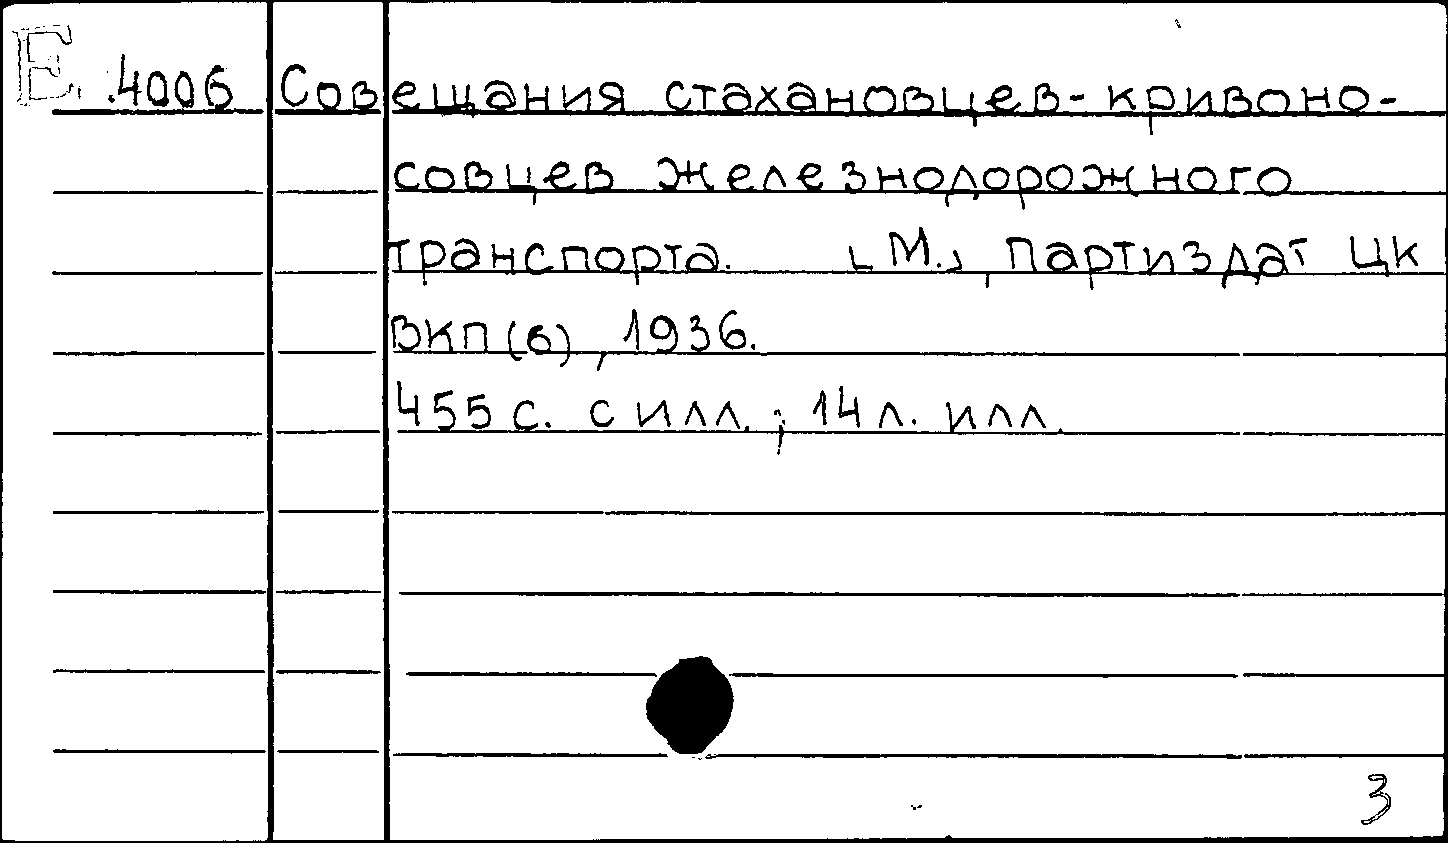 E .4006 Совещания стахановцев-кривоно-
совцев железнодорожного
транспорта. [М.], Партиздат ЦК
ВКП(б), 1936.
455 с. с илл.; 14 л. илл.
3